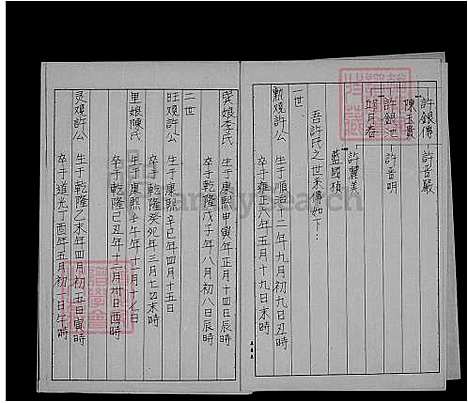 許銀傳 許志嚴
陳玉貴
許銀池 許志明
邱月春
許麗美
藍國楨
吾許氏之世系傳如下：
一世
勤燒許公 生于順治十二年九月初九日丑時
卒于雍正六年五月十九日未時
娘李氏 生于康熙甲寅年正月十四日辰時
卒于乾隆戊子年八月初八日辰時
二世
旺燒許公 生于康熙辛巳年四月十五日
卒于乾隆癸死年三月七日未時
里娘陳氏 生于康熙壬午年十一月十七日
卒于乾隆己丑年十二月卅日酉時
許公 生于乾隆乙未年四月初五日寅時
卒于道光丁酉年五月初一日午時